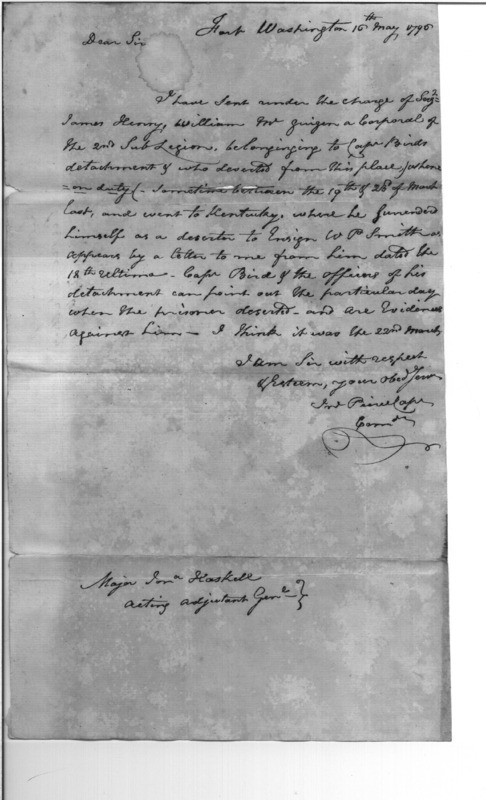 Fort Washington 16th May 1796
Dear Sir
I have sent under the charge of Serjt
James Henry, William Mc a Corporal of
the 2nd Sub Legion, belonginging to Capn Birds
detachment & who deserted from this place) where
=on duty (- Sometime between the 19th & 28th of March
last, and went to Kentucky, where he surrended
himself as a deserter to Ensign W P Smith as
appears by a letter to me from him dated the
18th ultimo - Capn Bird & the officers of his
detachment can point out the particular day
when the prisoner deserted - and are Evidences
against him - I think it was the 22nd March
I am Sir with respect
& Esteem, your obed
Capn
Comdr
Major Jona Haskell
Acting Adjutant Genl }